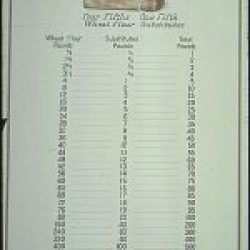 Four Fifths One Fifth
Wheat Flour Substitutes
Wheat Flour Substitutes Total
Pounds Pounds Pounds
4 1 5
8 2 10
12 3 15
16 4 20
20 5 25
24 6 30
28 7 35
32 8 40
36 9 45
40 10 50
44 11 55
48 12 60
52 13 65
56 14 70
60 15 75
64 16 80
68 17 85
72 18 90
76 19 95
80 20 100
160 40 200
240 60 300
320 80 400
400 100 500